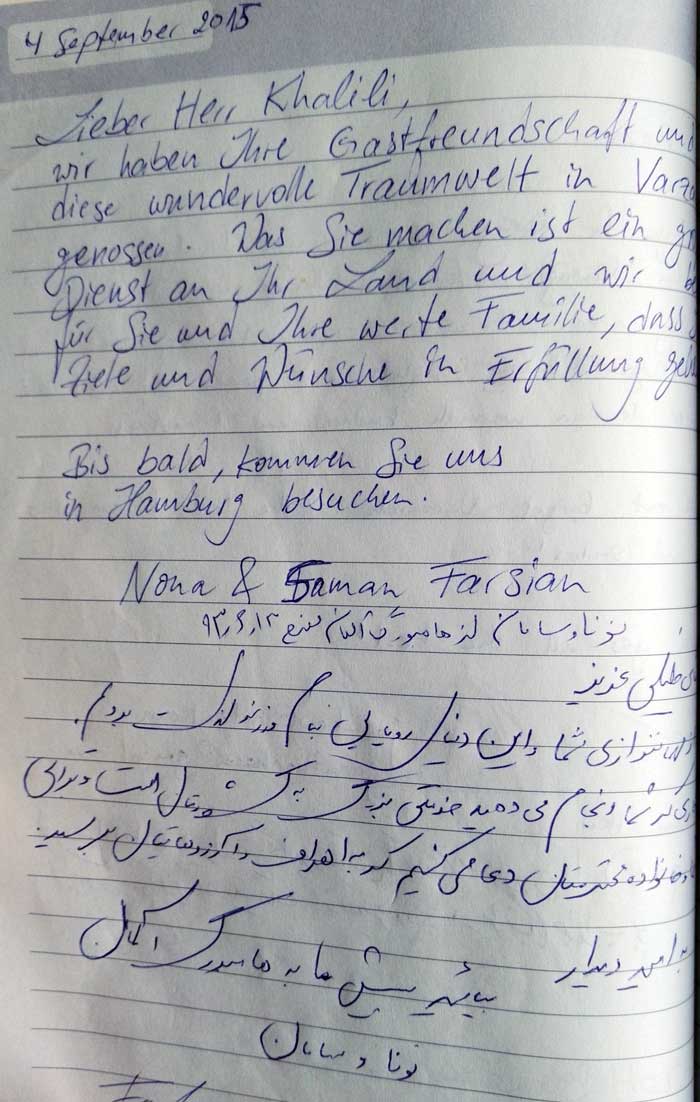 4 September 2015
Lieber Herr Khalili,
wir haben Ihre Gastfreundschaft und
diese wundervolle Traumwelt in
genossen. Was Sie machen ist ein
Dienst an Ihr Land und wir
für Sie und Ihre werte Familie, dass
Ziele und Wünsche in Erfüllung
Bis bald, kommen Sie uns
in Hamburg besuchen.
Nona & Saman Farsian
نونا و سامان از هامبورگ آلمان
عزیز
نوازی شما و این دنیای رویایی به نام ورزنه لذت بردیم.
که شما انجام می دهید خدمتی بزرگ به کشورتان است و برای
خانواده محترمتان دعا می کنیم که به اهداف و آرزوهایتان برسید.
به امید دیدار بیائید پیش ما به هامبورگ آلمان
نونا و سامان